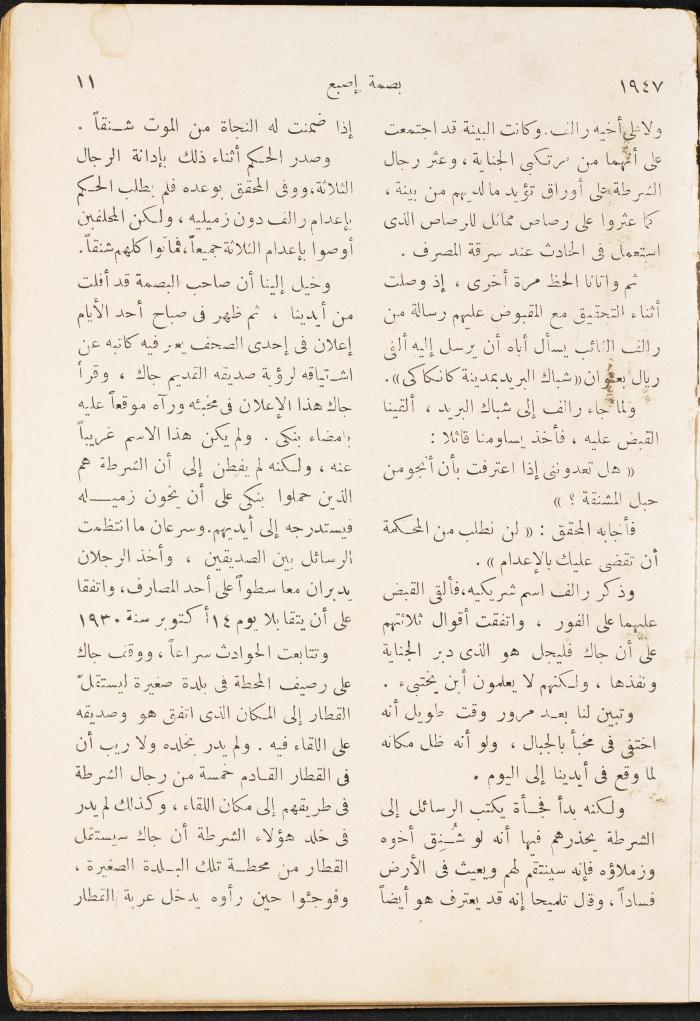 ١٩٤٧
بصمة إصبع
١١
ولا على أخيه رالف. وكانت البينة قد اجتمعت
على أنهما من مرتكبى الجناية ، وعثر رجال
الشرطة على أوراق تؤيد ما لديهم من بينة ،
كما عثروا على رصاص مماثل للرصاص الذى
استعمل فى الحادث عند سرقة المصرف .
ثم واتانا الحظ مرة أخرى ، إذ وصلت
أثناء التحقيق مع المقبوض عليهم رسالة من
رالف الغائب يسأل أباه أن يرسل إليه ألفى
ريال بعنوان «شباك البريد بمدينة كانكاكى».
ولما جاء رالف إلى شباك البريد ، ألقينا
القبض عليه ، فأخذ يساومنا قائلا :
« هل تعدوننى إذا اعترفت بأن أنجو من
حبل المشنقة ؟ »
فأجابه المحقق : « لن نطلب من المحكمة
أن تقضى عليك بالإعدام » .
وذكر رالف اسم شريكيه، فألقى القبض
عليهما على الفور ، واتفقت أقوال ثلاثتهم
على أن جاك فليجل هو الذى دبر الجناية
ونفذها ، ولكنهم لا يعلمون أين يختبىء .
وتبين لنا بعد مرور وقت طويل أنه
اختفى فى مخبأ بالجبال ، ولو أنه ظل مكانه
لما وقع فى أيدينا إلى اليوم .
ولكنه بدأ فجأة يكتب الرسائل إلى
الشرطة يحذرهم فيها أنه لو شُنِق أخوه
وزملاؤه فإنه سينتقم لهم ويعيث فى الأرض
فساداً ، وقال تلميحا إنه قد يعترف هو أيضاً
إذا ضمنت له النجاة من الموت شنقاً .
وصدر الحكم أثناء ذلك بإدانة الرجال
الثلاثة، ووفى المحقق بوعده فلم يطلب الحكم
بإعدام رالف دون زميليه ، ولكن المحلفين
أوصوا بإعدام الثلاثة جميعاً، فماتوا كلهم شنقاً.
وخيل إلينا أن صاحب البصمة قد أفلت
من أيدينا ، ثم ظهر فى صباح أحد الأيام
إعلان فى إحدى الصحف يعبر فيه كاتبه عن
اشتياقه لرؤية صديقه القديم جاك ، وقرأ
جاك هذا الإعلان فى مخبئه ورآه موقعاً عليه
بإمضاء بنكى . ولم يكن هذا الاسم غريباً
عنه ، ولكنه لم يفطن إلى أن الشرطة هم
الذين حملوا بنكى على أن يخون زميله
فيستدرجه إلى أيديهم. وسرعان ما انتظمت
الرسائل بين الصديقين ، وأخذ الرجلان
يدبران معا سطواً على أحد المصارف، واتفقا
على أن يتقابلا يوم ١٤ أكتوبر سنة ١٩٣٠
وتتابعت الحوادث سراعاً ، ووقف جاك
على رصيف المحطة فى بلدة صغيرة ليستقلّ
القطار إلى المكان الذى اتفق هو وصديقه
على اللقاء فيه . ولم يدر بخلده ولا ريب أن
فى القطار القادم خمسة من رجال الشرطة
فى طريقهم إلى مكان اللقاء ، وكذلك لم يدر
فى خلد هؤلاء الشرطة أن جاك سيستقل
القطار من محطة تلك البلدة الصغيرة ،
وفوجئوا حين رأوه يدخل عربة القطار